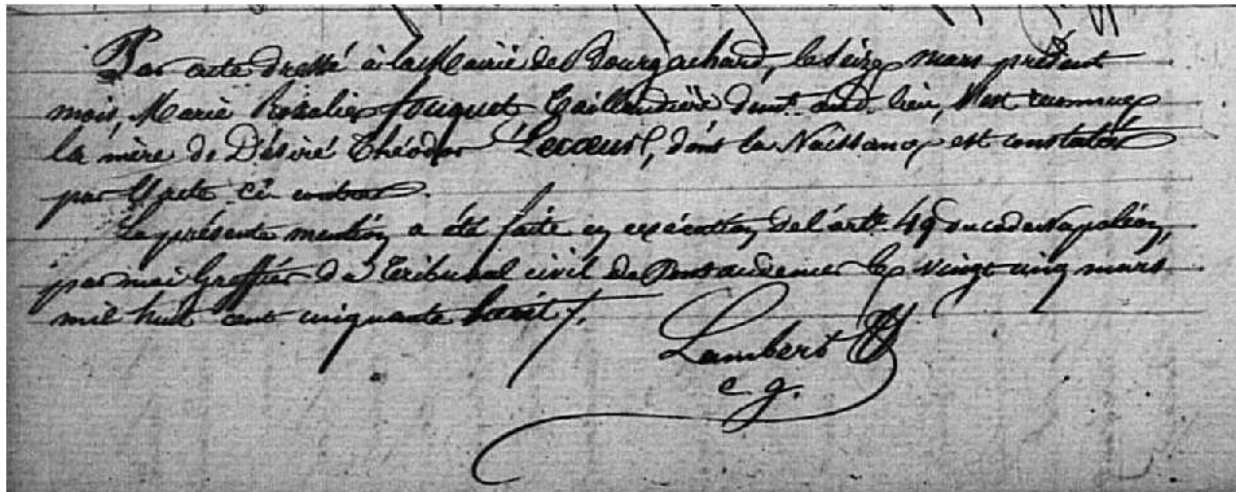 Par acte dressé à la Mairie de Bourgachard, le seize mars présent
mois, Marie Rosalie fouquet, demt. aud. lieu, s'est reconnue
la mère de Désiré Théodor Lecoeur, dont la Naissance est constatée
par l'acte ci contre.
La présente mention a été faite en exécution de l'artle. 49 du code Napoléon,
par moi Greffier du Tribunal civil de Pontaudemer le vingt cinq mars
mil huit cent cinquante huit /.
Lambert
c. g.